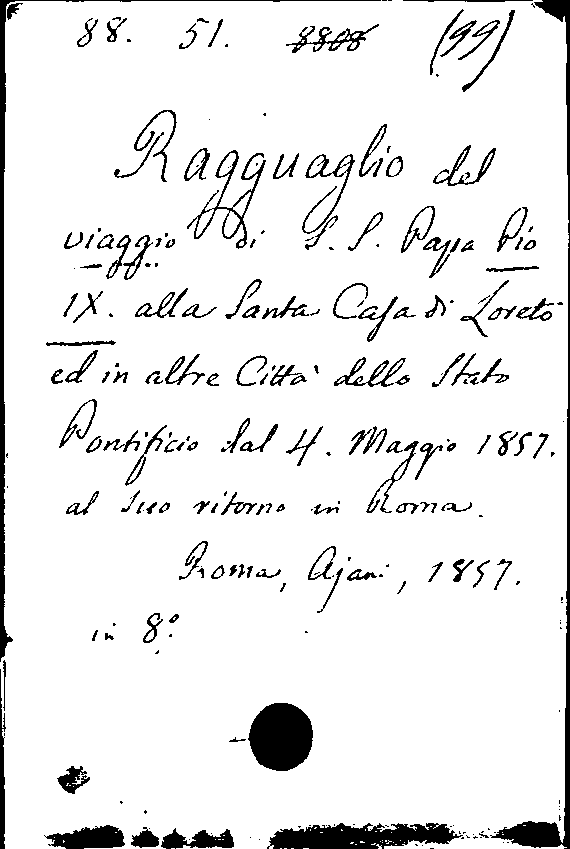 88. 51. 8808 (99)
Ragguaglio del
viaggio di S. S. Papa Pio
IX. alla Santa Casa di Loreto
ed in altre Città dello Stato
Pontificio dal 4. Maggio 1857.
al suo ritorno in Roma.
Roma, Ajani, 1857.
in 8º.